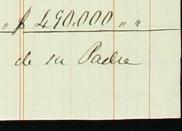 „ $ 490.000 „ „
de su Padre